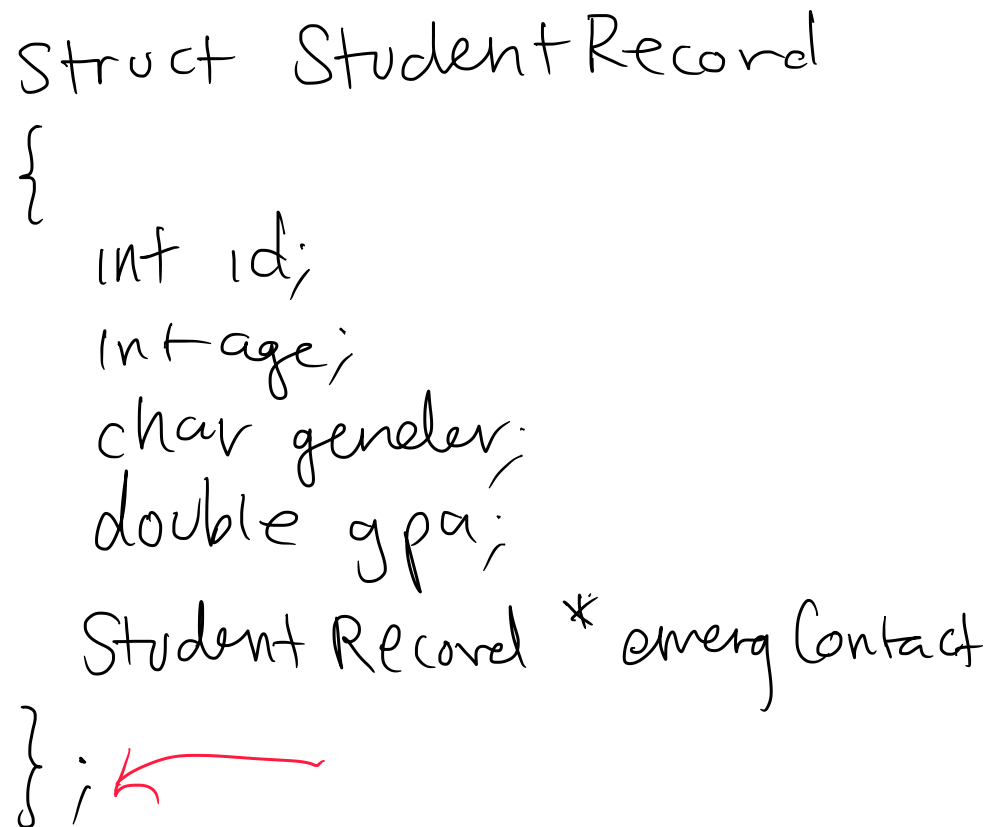 struct StudentRecord
{
int id;
int age;
char gender;
double gpa;
StudentRecord * emergContact
};